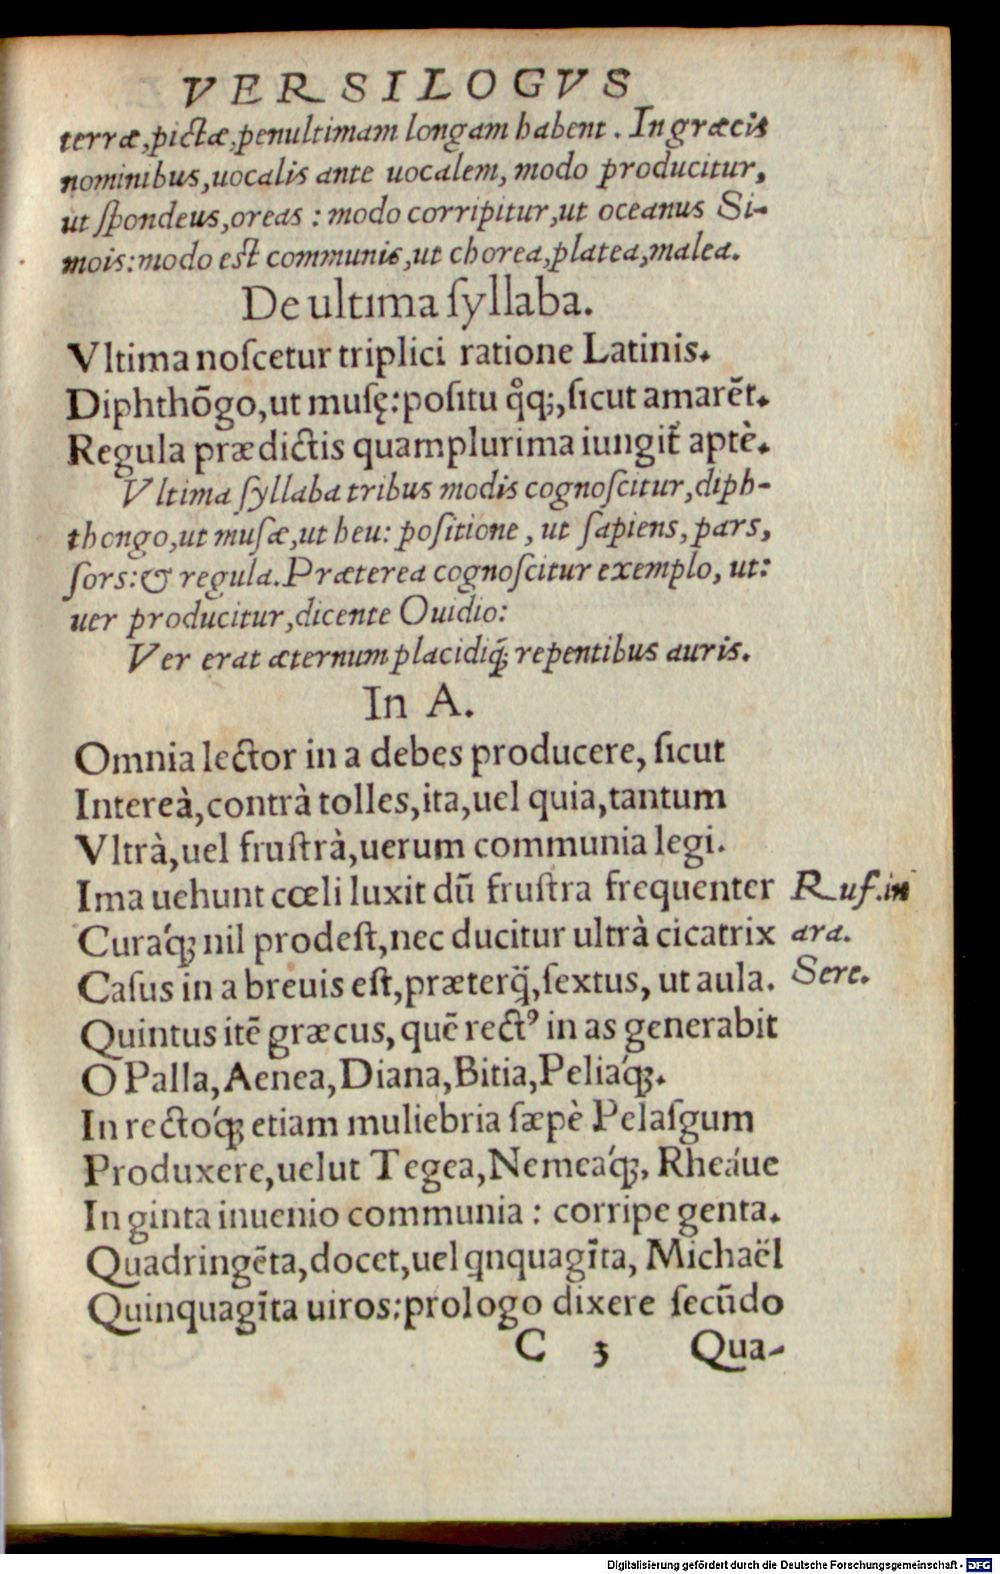 VERSILOGVS
terræ,pictæ,penultimam longam habent. In græcis
nominibus,uocalis ante uocalem, modo producitur,
ut ſpondeus,oreas : modo corripitur,ut oceanus Si-
mois:modo est communis,ut chorea,platea,malea.
De ultima ſyllaba.
Vltima noſcetur triplici ratione Latinis.
Diphthōgo,ut muſę:poſitu q̊q;,ſicut amarēt.
Regula prædictis quamplurima iungit᷑ aptè.
Vltima ſyllaba tribus modis cognoſcitur,diph-
thongo,ut muſæ,ut heu: poſitione, ut ſapiens, pars,
ſors:& regula.Præterea cognoſcitur exemplo, ut:
uer producitur,dicente Ouidio:
Ver erat æternum placidiq́; repentibus auris.
In A.
Omnia lector in a debes producere, ſicut
Intereà,contrà tolles,ita,uel quia,tantum
Vltrà,uel fruſtrà,uerum communia legi.
Ima uehunt cœli luxit dū fruſtra frequenter Ruf.in
Curaq́; nil prodeſt,nec ducitur ultrà cicatrix ara.
Caſus in a breuis eſt,præterq̃,ſextus, ut aula. Sere.
Quintus itē græcus, quē rectꝰ in as generabit
O Palla,Aenea,Diana,Bitia,Peliaq́;.
In rectoq́; etiam muliebria ſæpè Pelaſgum
Produxere,uelut Tegea,Nemeaq́;, Rheáue
In ginta inuenio communia : corripe genta.
Quadringēta,docet,uel qnquagīta, Michaël
Quinquagīta uiros:prologo dixere ſecūdo
C 3 Qua-
Digitalisierung gefördert durch die Deutsche Forschungsgemeinschaft - DFG